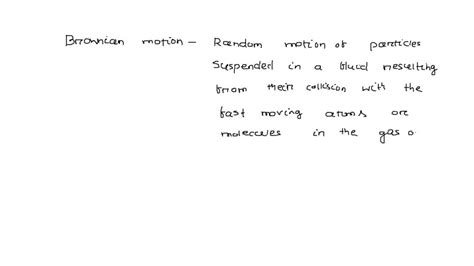 Brownian motion – Random motion of particles
suspended in a fluid resulting
from their collision with the
fast moving atoms or
molecules in the gas o